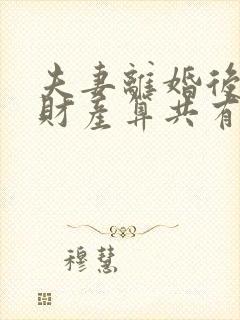 夫妻離婚後
財產算共有
穆慧